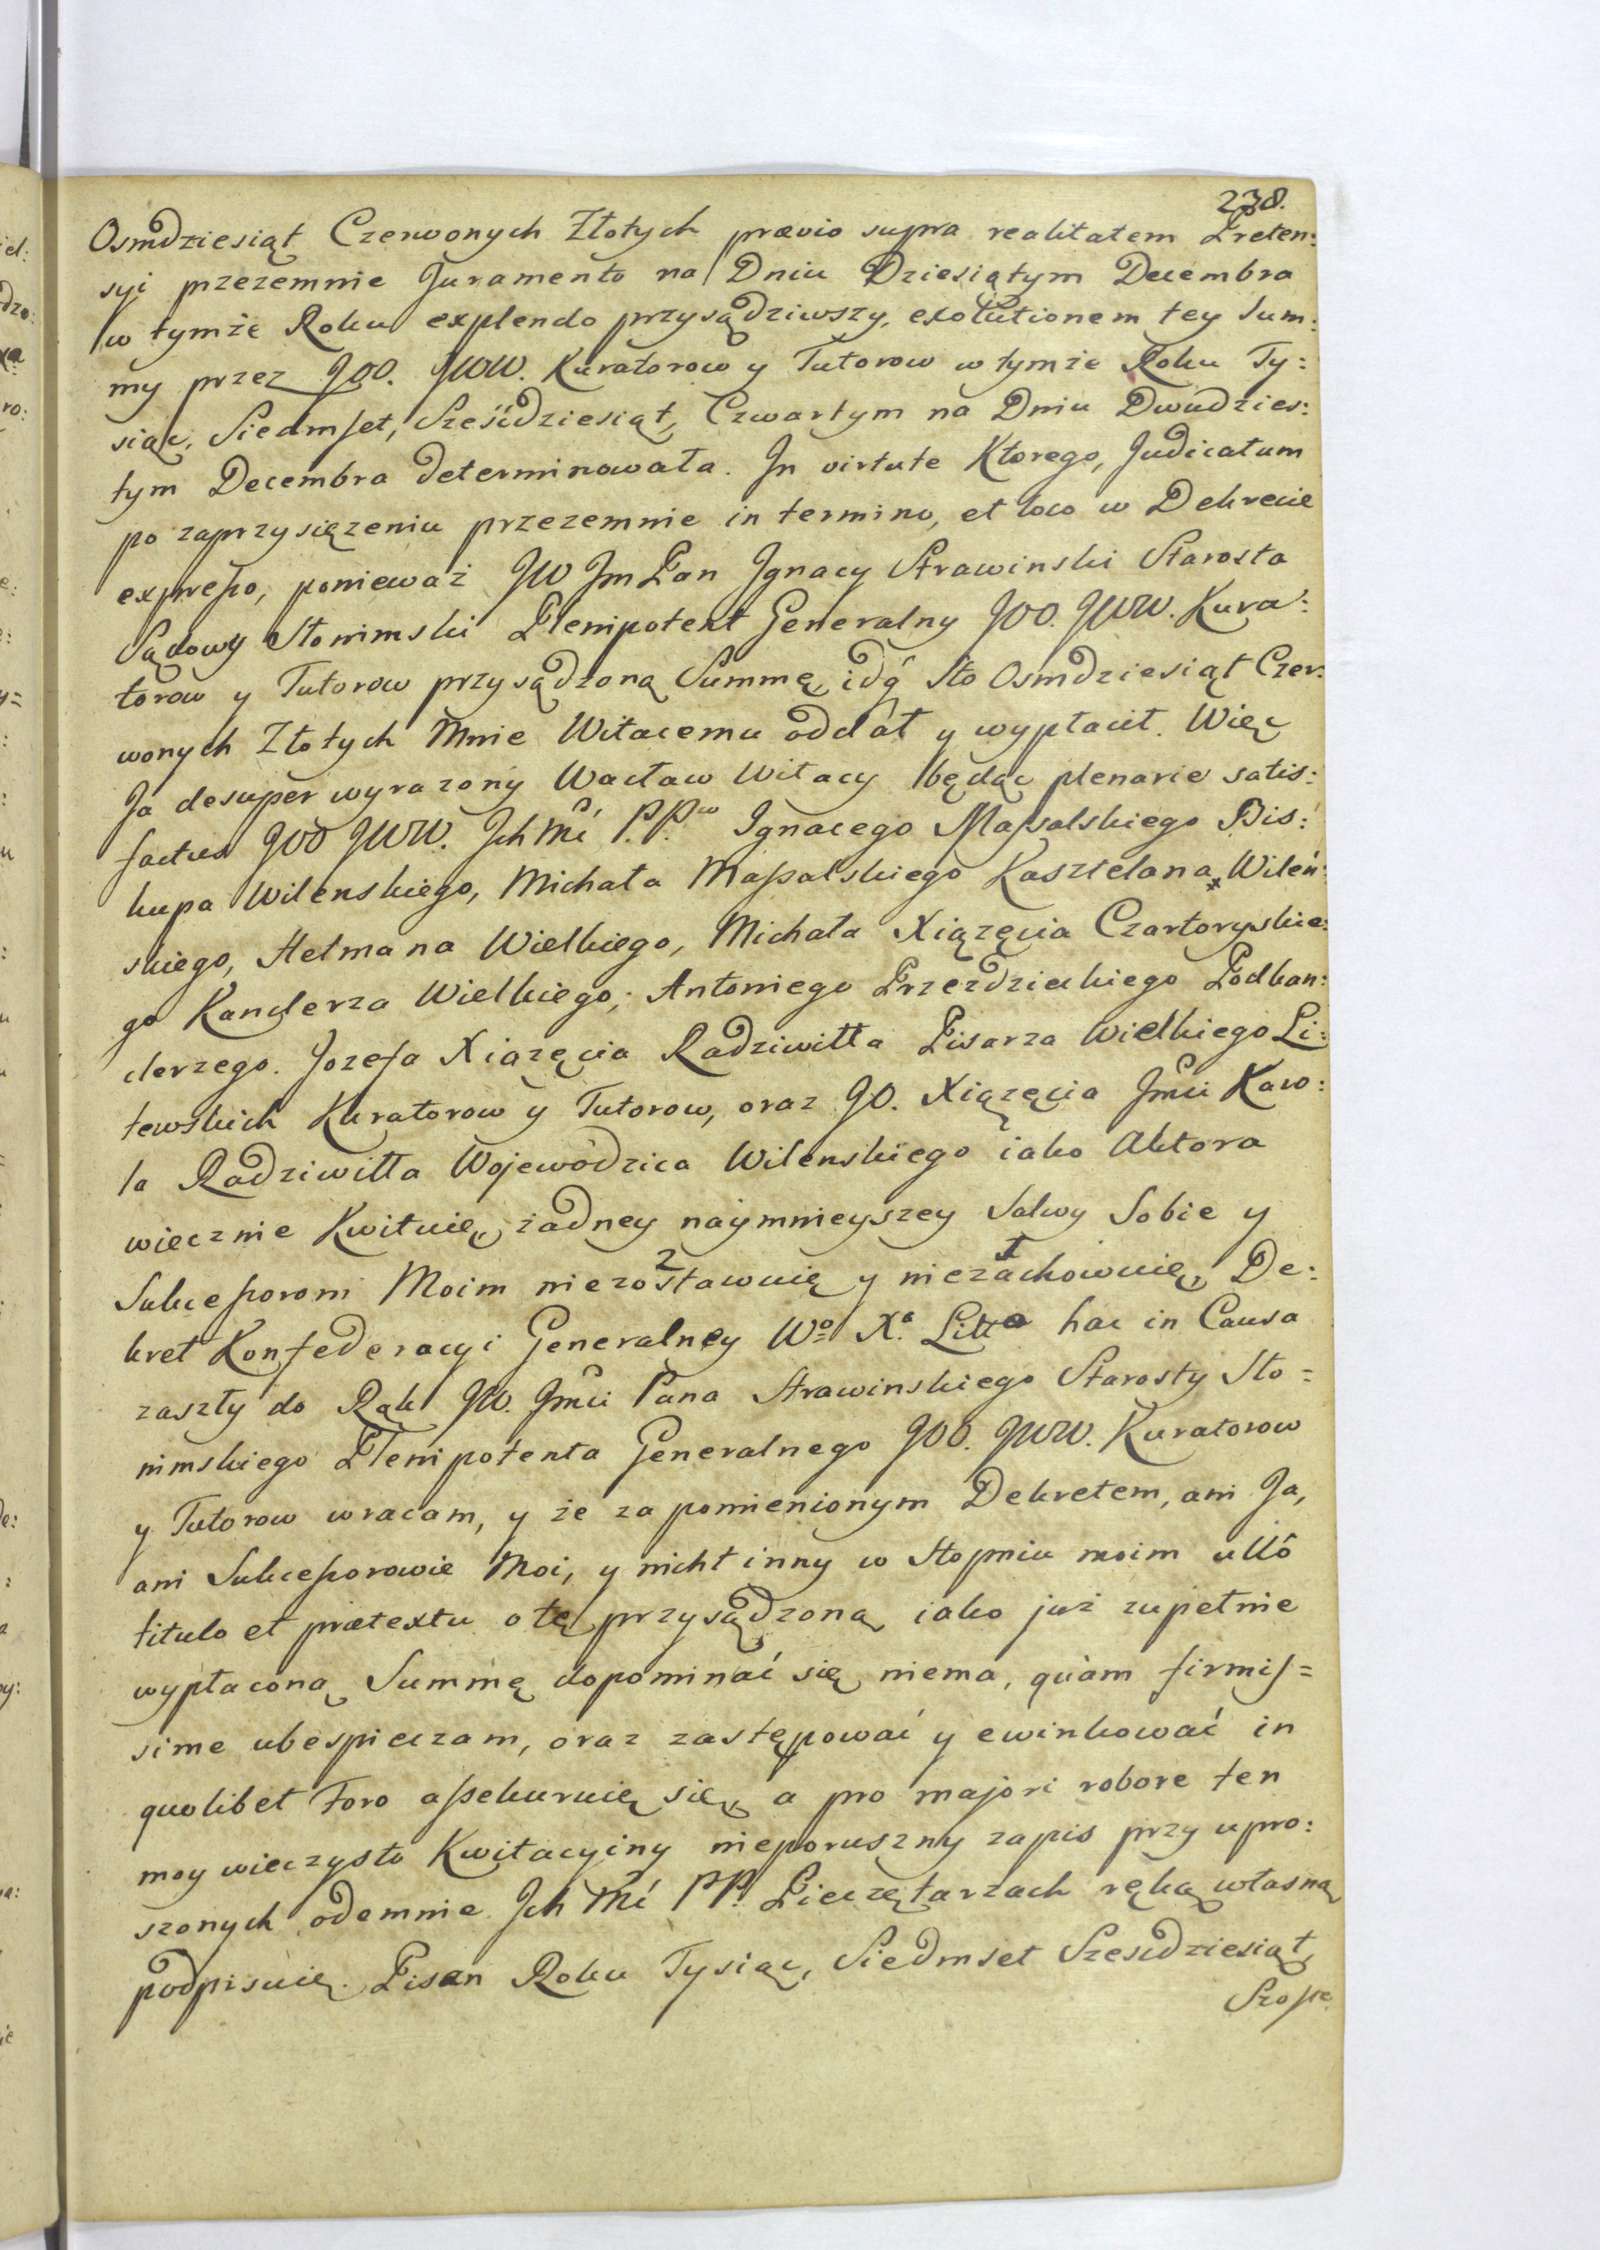 238.
Osmdziesiąt Czerwonych Złotych prævio supra realitatem Preten:
syi przezemnie Juramento na Dniu Dziesiątym Decembra
w tymże Roku explendo przysądziwszy, exolutionem tey Sum:
my przez JOO. JWW. Kuratorow y Tutorow w tymże Roku Ty:
siąc, Siedmset, Sześćdziesiąt, Czwartym na Dniu Dwudzies:
tym Decembra determinowała. In virtute Ktorego, Judicatum
po zaprzysiężeniu przezemnie in termino, et loco w Dekrecie
expresso, ponieważ JW JmPan Jgnacy Strawinski Starosta
Sądowy Słonimski Plenipotent Generalny JOO. JWW. Kura:
torow y Tutorow przysądzoną Summę, idq́ Sto Osmdziesiąt Czer:
wonych Złotych Mnie Witacemu oddał y wypłacił. Więc
Ja desuper wyrazony Wacław Witacy będąc plenarie satis:
factus JOO JWW. Jch Mć P.P.ʷ Ignacego Massalskiego Bis:
kupa Wilenskiego, Michała Massalskiego Kasztelana Wileń:
skiego, Hetmana Wielkiego, Michała Xiązęcia Czartoryskie:
go Kanclerza Wielkiego, Antoniego Przezdzieckiego Podkan:
clerzego. Jozefa Xiązęcia Radziwiłła Pisarza Wielkiego Li:
tewskich Kuratorow y Tutorow, oraz JO. Xiązęcia Jmći Karo:
la Radziwiłła Wojewodzica Wilenskiego iako Aktora
wiecznie Kwituię, żadney naymnieyszey Salwy Sobie y
Sukcessorom Moim niezostawuię 2 y niezachowuię 1, De:
kret Konfederacyi Generalney Wᵒ Xᵃ Litto hac in Causa
zaszły do Rąk JW. Jmći Pana Strawinskiego Starosty Sło=
nimskiego Plenipotenta Generalnego JOO. JWW. Kuratorow
y Tutorow wracam, y że za pomienionym Dekretem, ani Ja,
ani Sukcessorowie Moi, y nicht inny w Stopniu moim ullô
titulo et prætextu o tę przysądzoną iako już zupełnie
wypłaconą Summę dopominać się niema, quàm firmis=
sime ubespieczam, oraz zastępować y ewinkować in
quolibet Foro assekuruię się, a pro majori robore ten
moy wieczysto Kwitacyiny nieporuszny zapis przy upro:
szonych odemnie Jch Mć PP. Pieczętarzach ręką własną
podpisuię. Pisan Roku Tysiąc, Siedmset Szescdziesiąt,